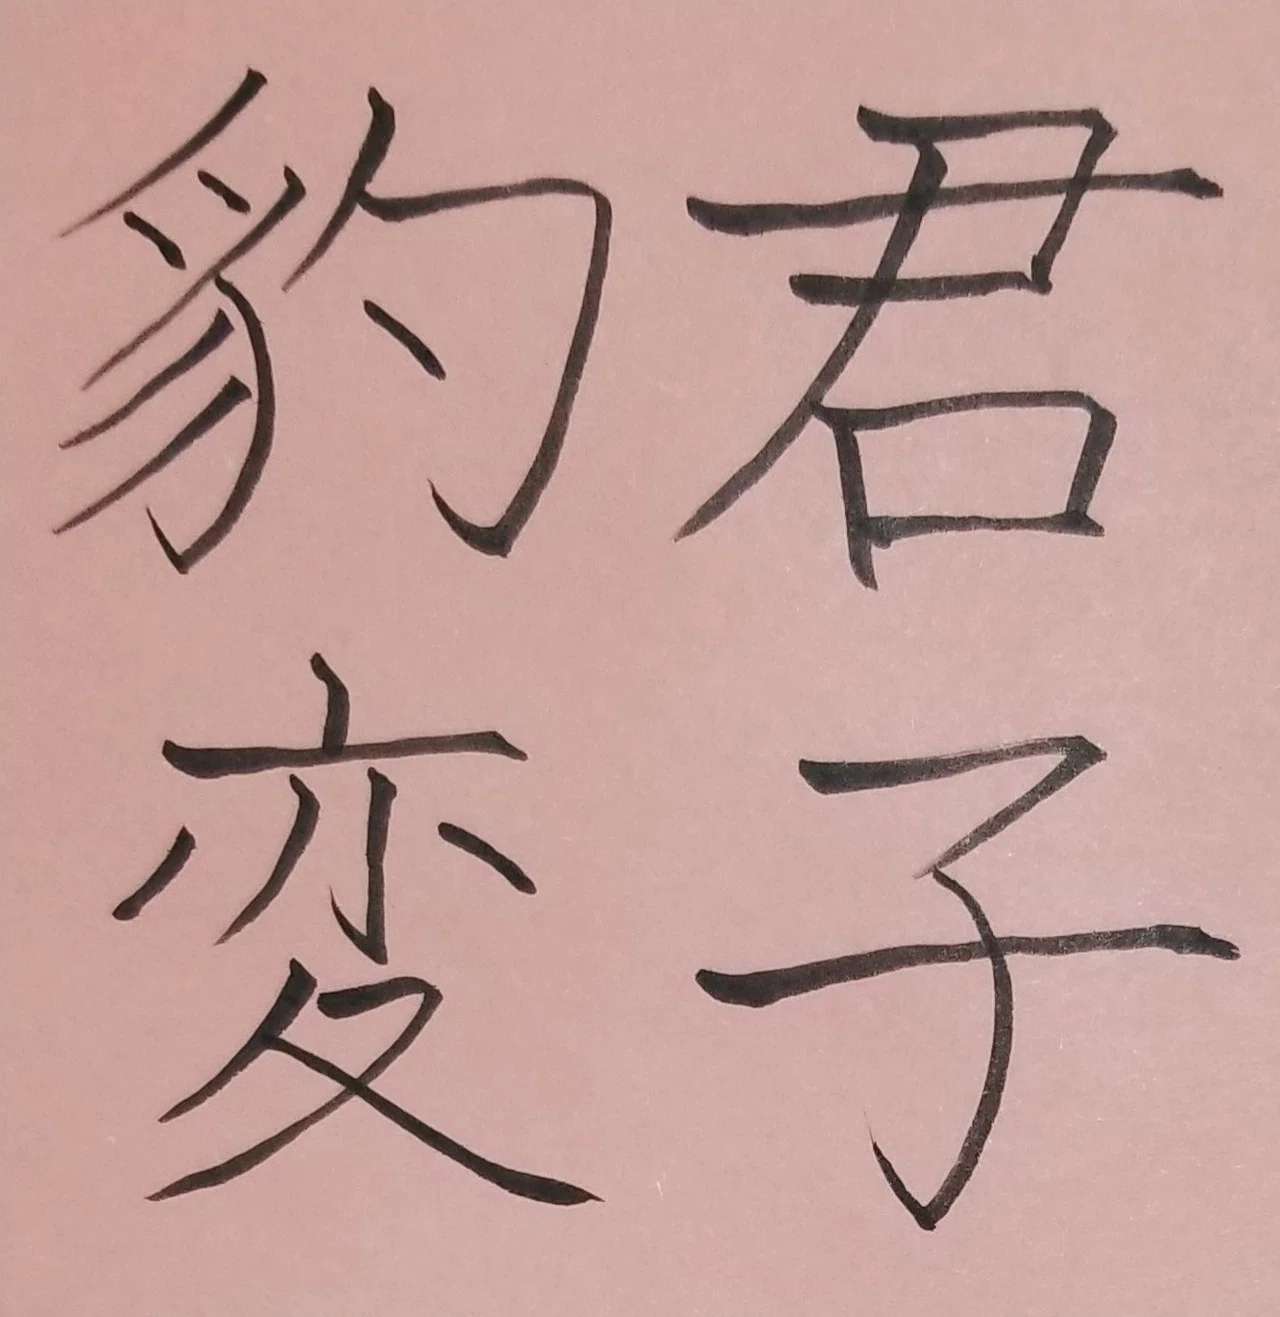 君子
豹変